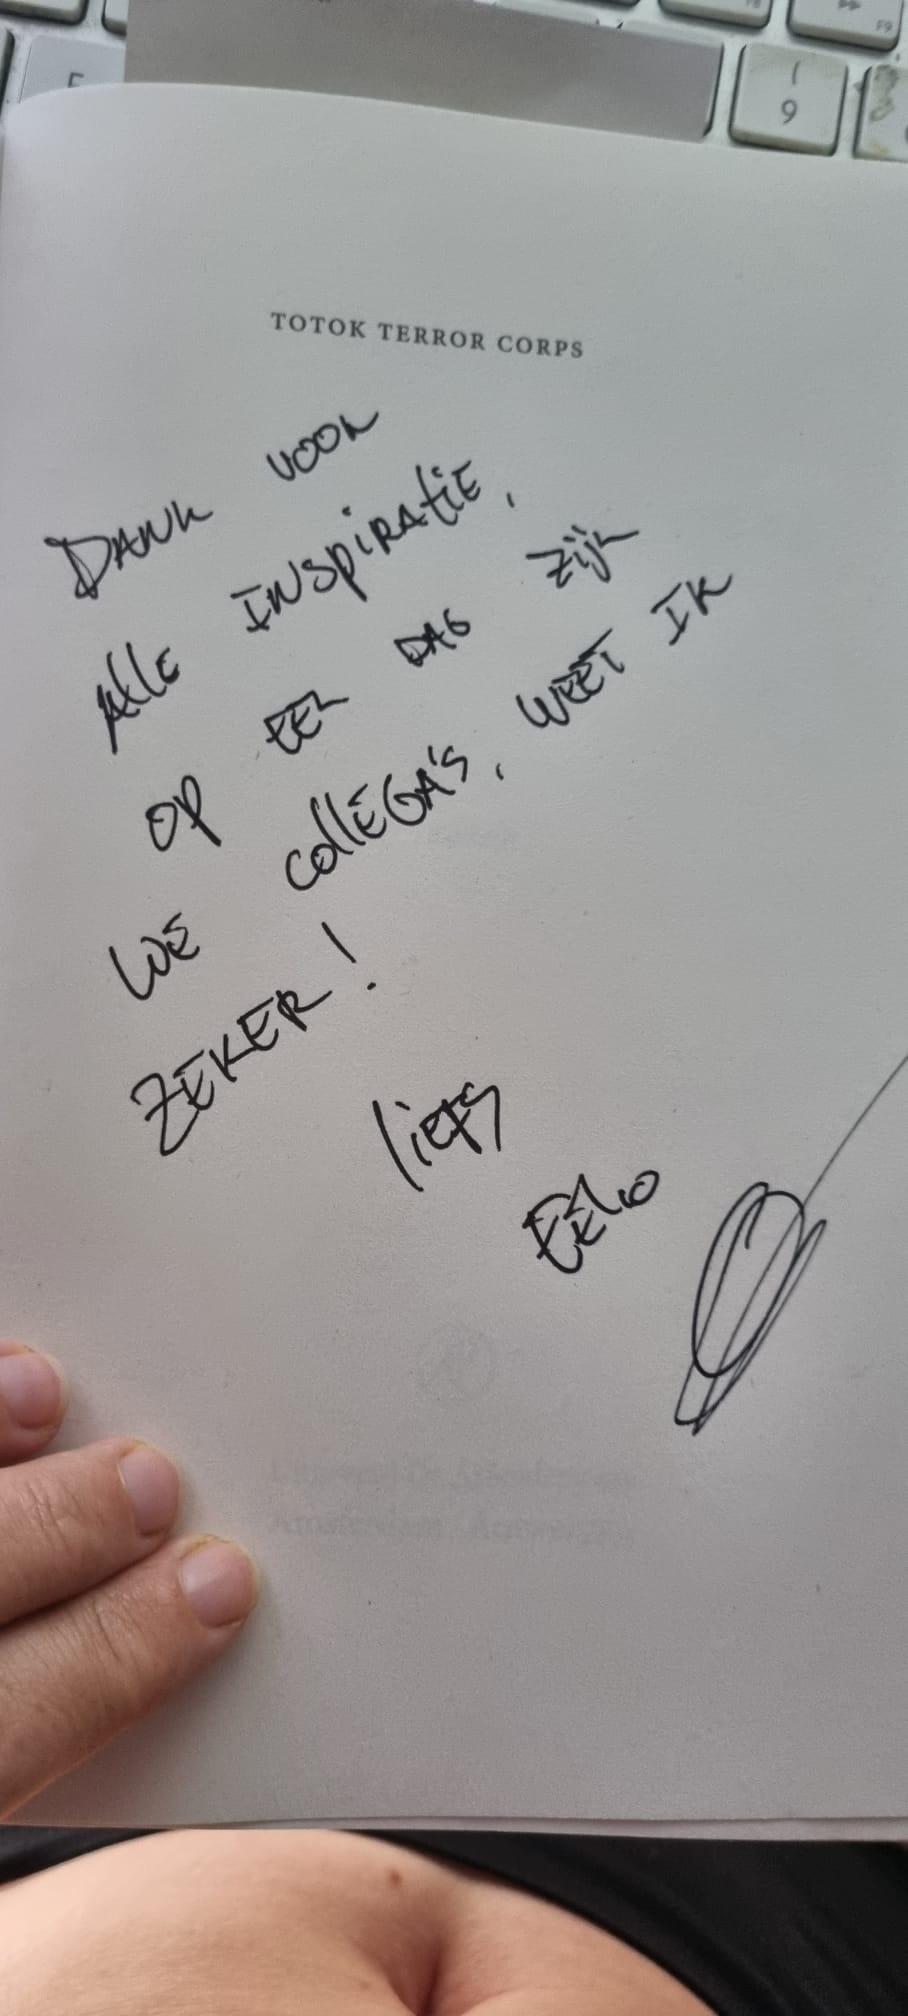 TOTOK TERROR CORPS
DANK VOOR
AllE INSpiRAtiE,
OP EEN DAG Zijn
WE collEGA'S, WEET IK
ZEKER!
liefs
EElCO
(
9
F9